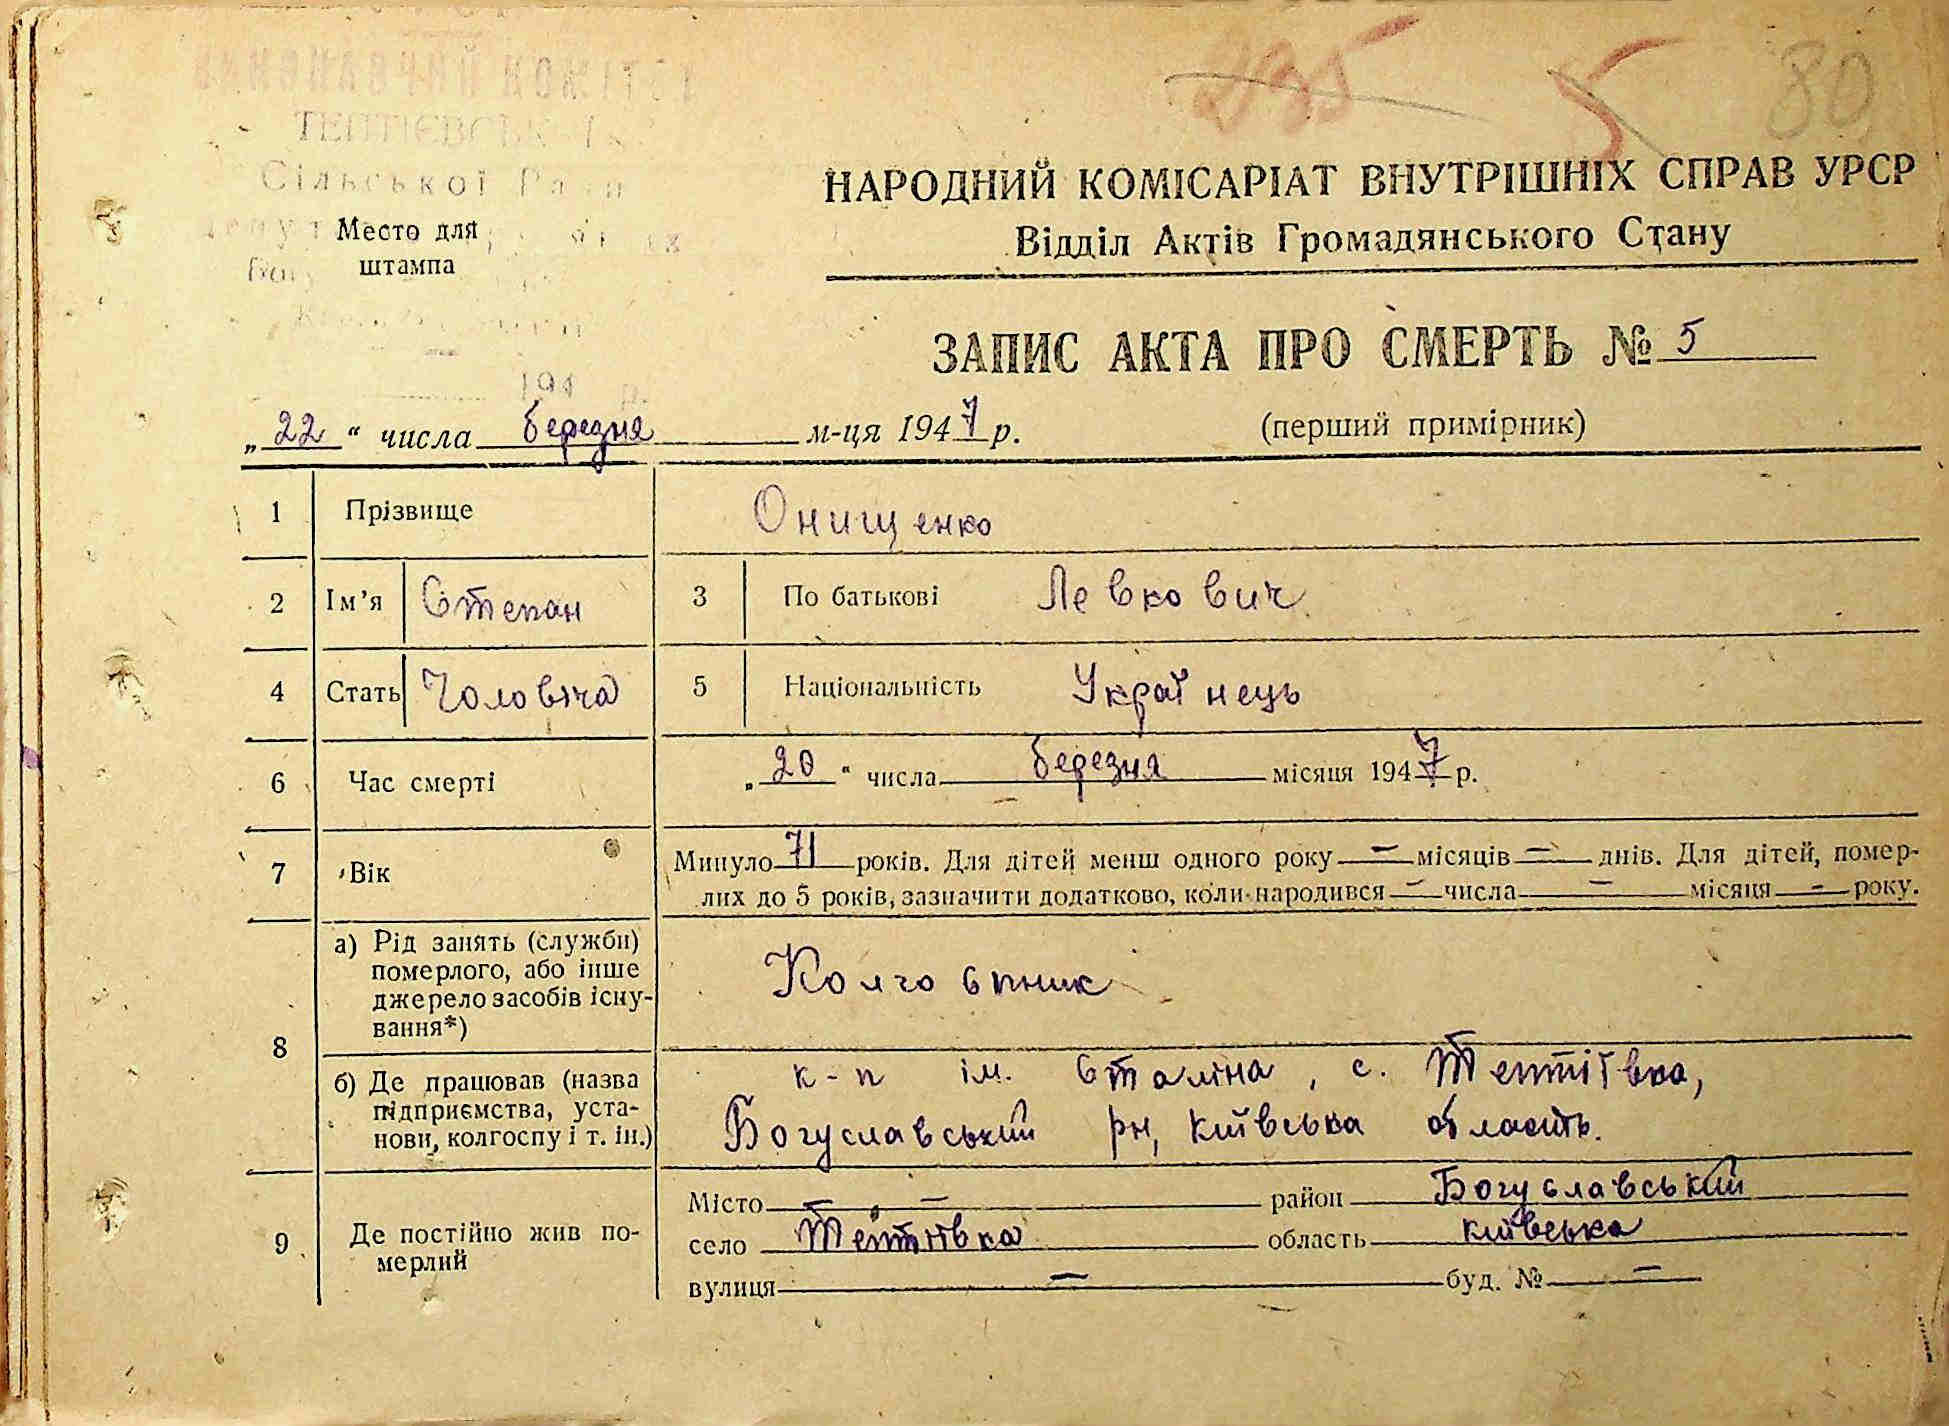 285 5 80
ТЕПТІЄВСЬК
Сільської Ради
Место для
штампа
194 р.
НАРОДНИЙ КОМІСАРІАТ ВНУТРІШНІХ СПРАВ УРСР
Відділ Актів Громадянського Стану
ЗАПИС АКТА ПРО СМЕРТЬ № 5
„22“ числа березня м-ця 1947 р. (перший примірник)
1 Прізвище Онищенко
2 Ім’я Степан 3 По батькові Левкович
4 Стать Чоловіча 5 Національність Українець
6 Час смерті „20“ числа березня місяця 1947 р.
7 Вік Минуло 71 років. Для дітей менш одного року — місяців — днів. Для дітей, помер-
лих до 5 років, зазначити додатково, коли народився — числа — місяця — року.
8 а) Рід занять (служби)
померлого, або інше
джерело засобів існу-
вання*)
Колгоспник
б) Де працював (назва
підприємства, уста-
нови, колгоспу і т. ін.)
к-п ім. Сталіна, с. Тептіївка,
Богуславський рн, київська область.
9 Де постійно жив по-
мерлий
Місто — район Богуславський
село Тептіївка область київська
вулиця — буд. № —